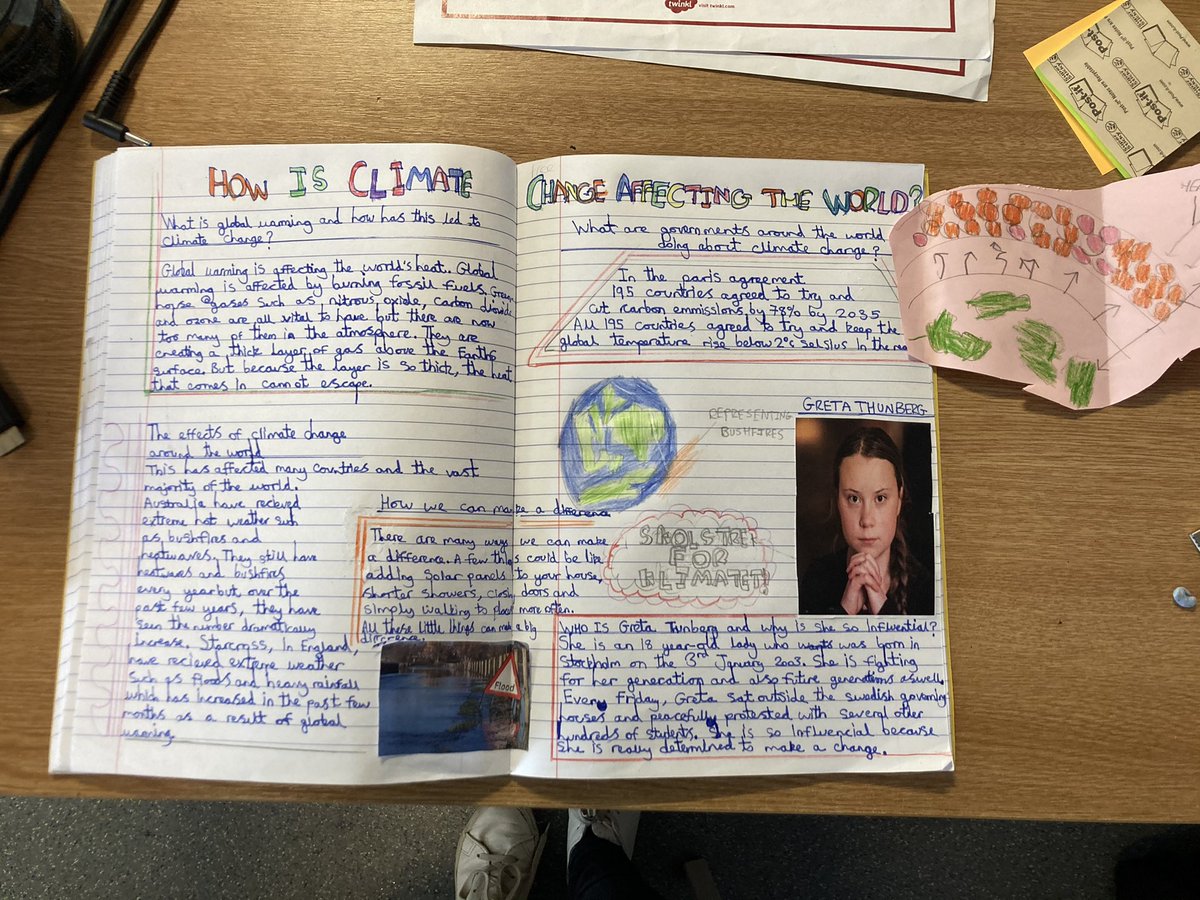 twinkl visit twinkl.com
Post-it
HOW IS CLIMATE CHANGE AFFECTING THE WORLD?
What is global warming and how has this led to
climate change?
Global warming is affecting the world's heat. Global
warming is affected by burning fossil fuels. Green
house gases such as nitrous, oxide, carbon dioxide
and ozone are all vital to have but there are now
too many of them in the atmosphere. They are
creating a thick layer of gas above the Earths
surface. But because the layer is so thick, the heat
that comes in cannot escape.
The effects of climate change
around the world
This has affected many countries and the vast
majority of the world.
Australia have recieved
extreme hot weather such
as, bushfires and
heatwaves. They still have
heatwaves and bushfires
every year but, over the
past few years, they have
seen the number dramatically
increase. Starcross, in England,
have recieved extreme weather
such as floods and heavy rainfall
which has increased in the past few
months as a result of global
warming.
How we can make a difference
There are many ways we can make
a difference. A few things could be like
adding solar panels to your house,
shorter showers, close doors and
simply walking to places more often.
All these little things can make a big
difference.
Flood
What are governments around the world
doing about climate change?
In the paris agreement
195 countries agreed to try and
cut carbon emmissions by 78% by 2035
All 195 countries agreed to try and keep the
global temperature rise below 2°c Salsius in the
REPRESENTING
BUSHFIRES
GRETA THUNBERG
SKOLSTREK
FOR
KLIMATET!
WHO IS Greta Tunberg and why is she so Influential?
She is an 18 year-old lady who was born in
Stockholm on the 3rd January 2003. She is fighting
for her generation and also fitire generations aswell.
Every Friday, Greta sat outside the swedish governing
houses and peacefully protested with several other
hundreds of students. She is so influencial because
she is really determined to make a change.